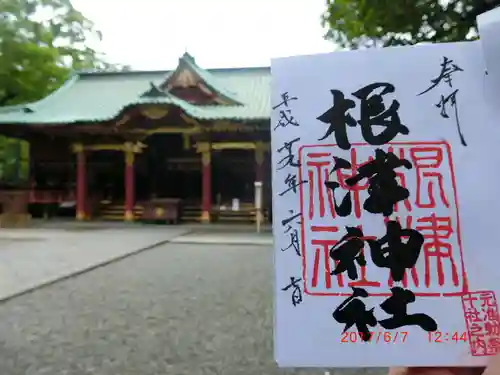 奉拝
根津神社
平成二十九年六月七日
根津神社
元准勅祭
十社之内
2017/6/7 12:44